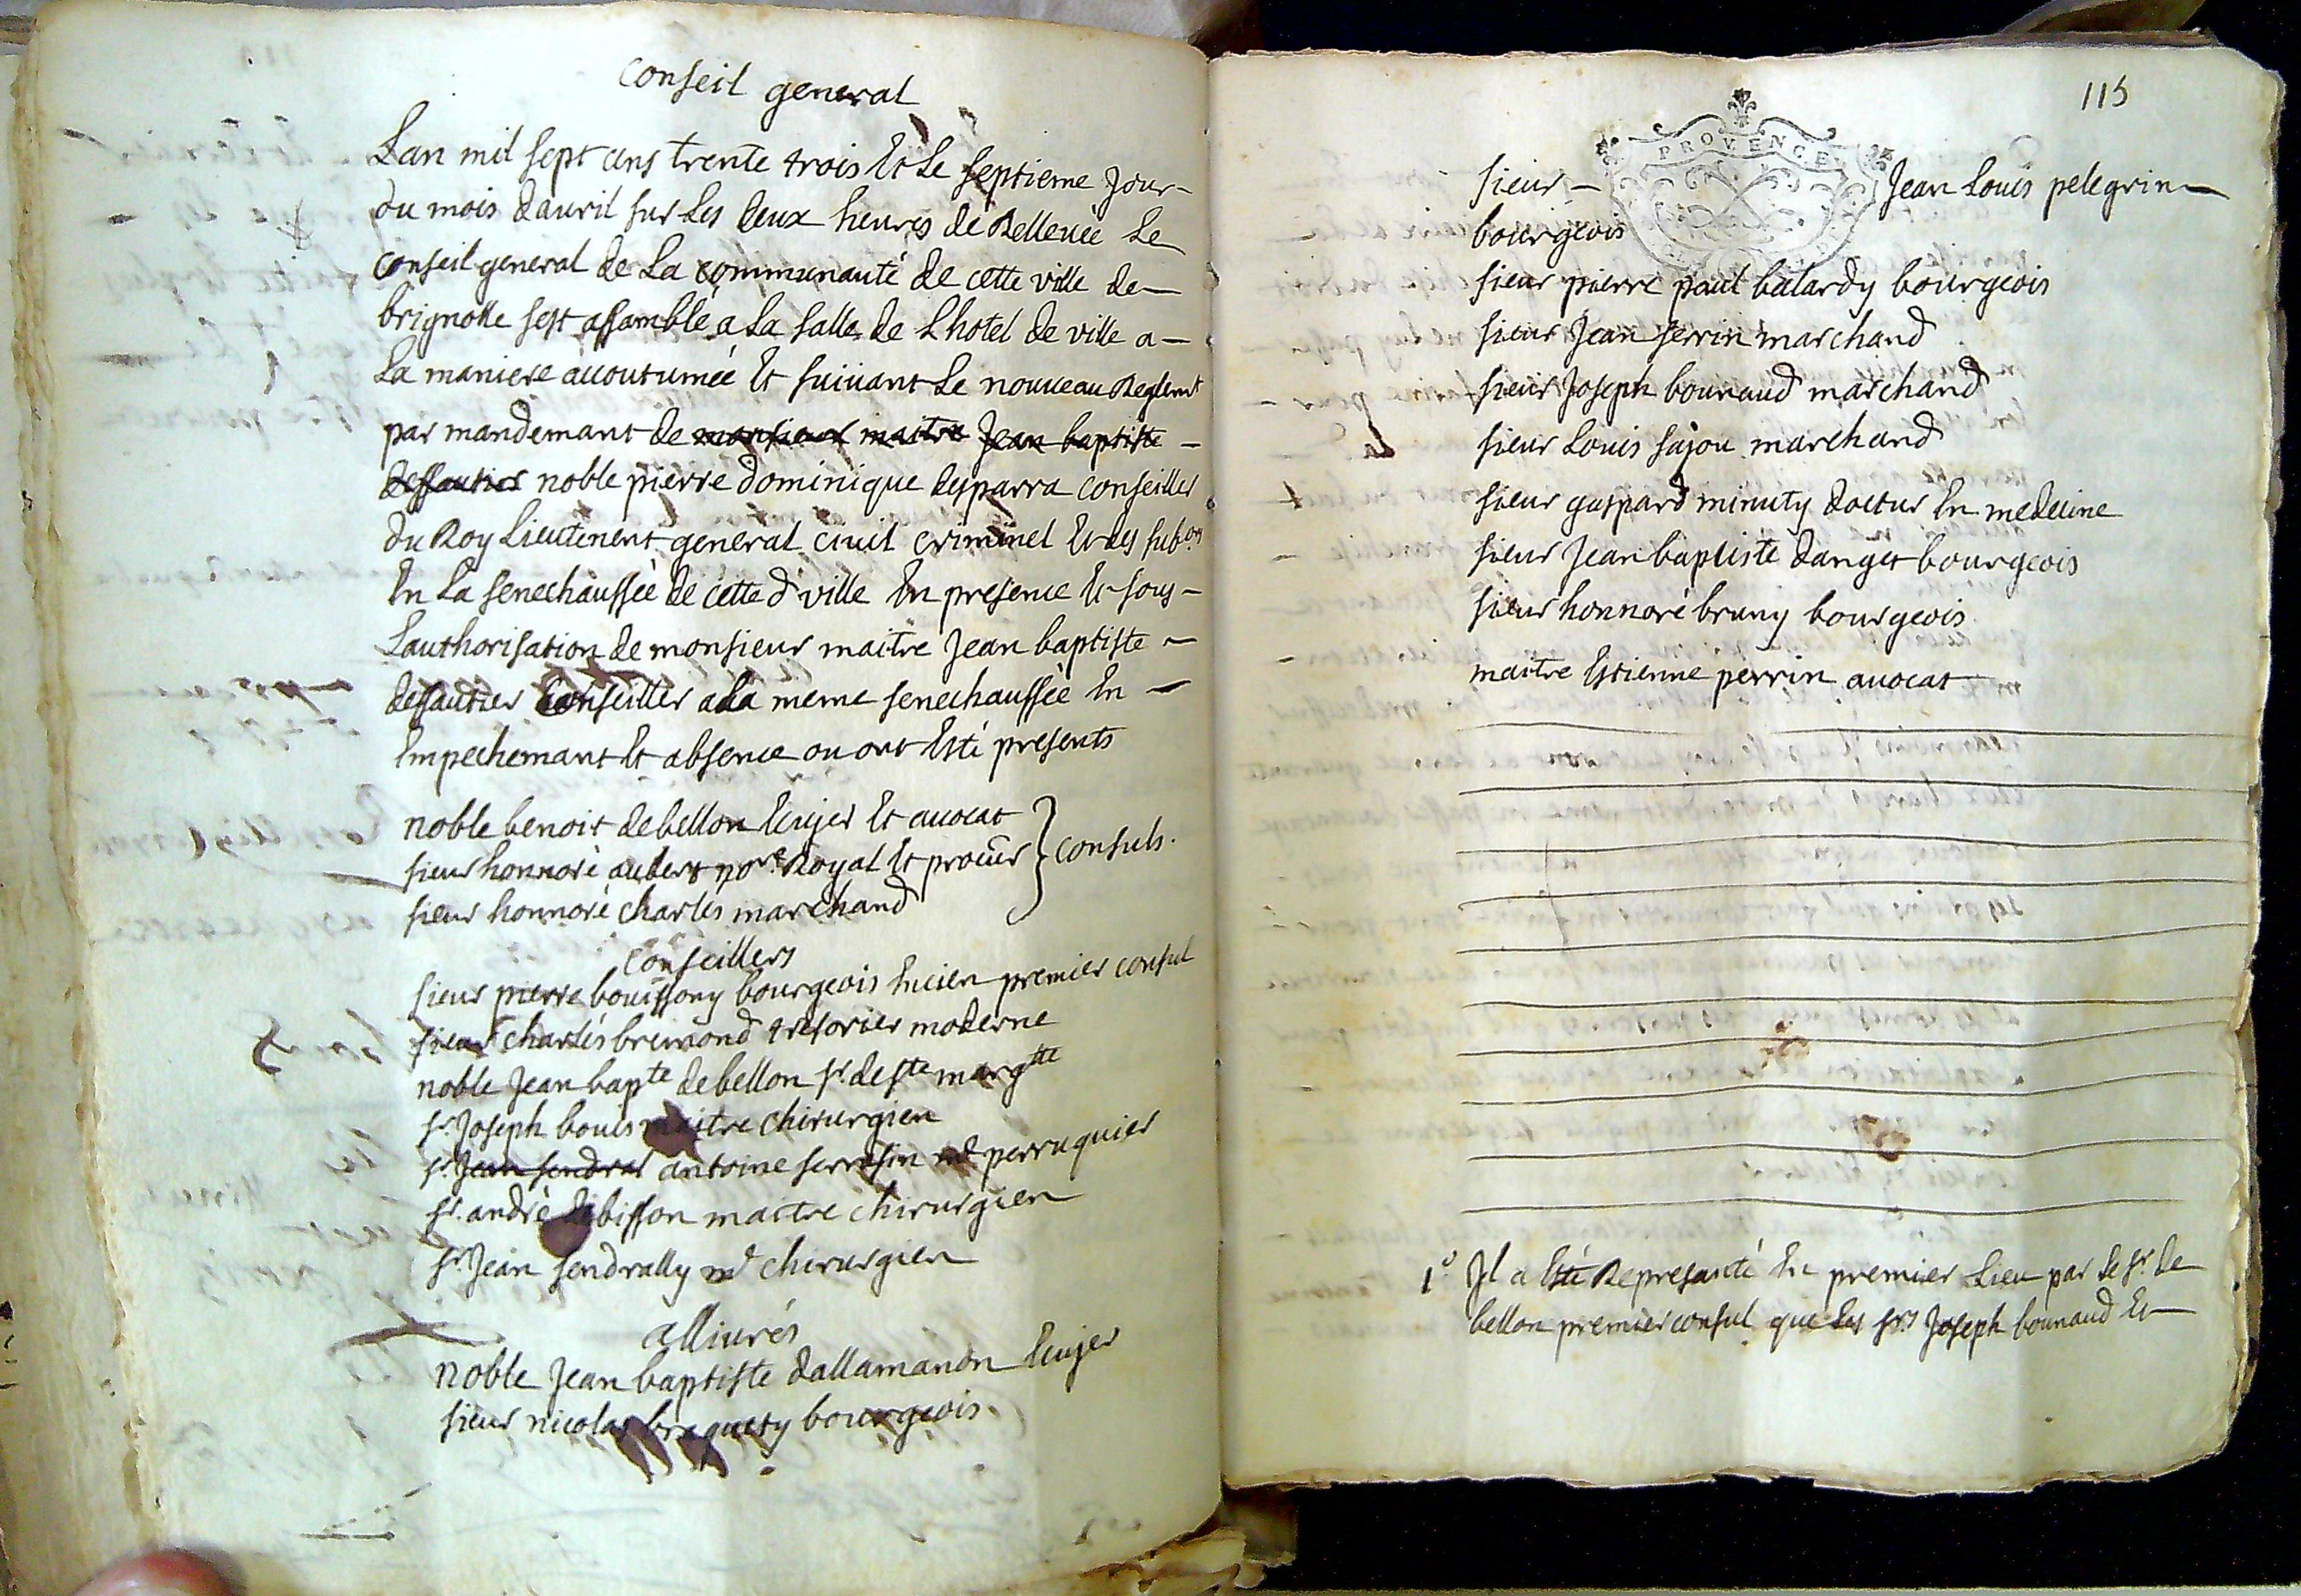 Conseil general
Lan mil sept cens trente trois Et Le septieme Jour
du mois dauril sur Les deux heures de Relleuèe Le
conseil general de La communauté de cette ville de
brignolle sest assamblé a La salle de Lhotel de ville a
La maniere accoutumée Et suiuant Le nouueau Reglemt
par mandemant de monsieur maitre Jean baptiste
dessautier noble pierre dominique desparra conseiller
du Roy Lieutenent general ciuil criminel Et des subons
En La senechaussèe de cette d ville En presence Et sous
Lauthorisation de monsieur maitre Jean baptiste
dessautier Conseiller a La meme senechaussèe En
Empechemant Et absence ou ont Esté presents
noble benoit debellon Ecujer Et auocat
sieur honnoré aubert nore Royal Et procur } consuls.
sieur honnoré charles marchand
Conseillers
sieur pierre bouissony bourgeois Encien premier consul
sieur charles bremond tresorier moderne
noble Jean bapte debellon sr. de ste margtte
sr. Joseph bouis maitre chirurgien
sr. Jean sendral antoine serrasin md perruquier
sr. andrè debisson maitre chirurgien
sr. Jean sendrally md chirurgien
alliurés
noble Jean baptiste dallamanon Ecujer
sieur nicolas braquety bourgeois
115
PROVENCE
sieur Jean Louis pelegrin
bourgeois
sieur pierre paul batardy bourgeois
sieur Jean serrin marchand
sieur Joseph bounaud marchand
sieur Louis sajou marchand
sieur gaspard minuty doctur En medecine
sieur Jean baptiste danget bourgeois
sieur honnoré bruny bourgeois
maitre Estienne perrin auocat
1° Jl a Esté Represanté En premier Lieu par Le sr. de
bellon premier consul que Les srs Joseph bounaud Et